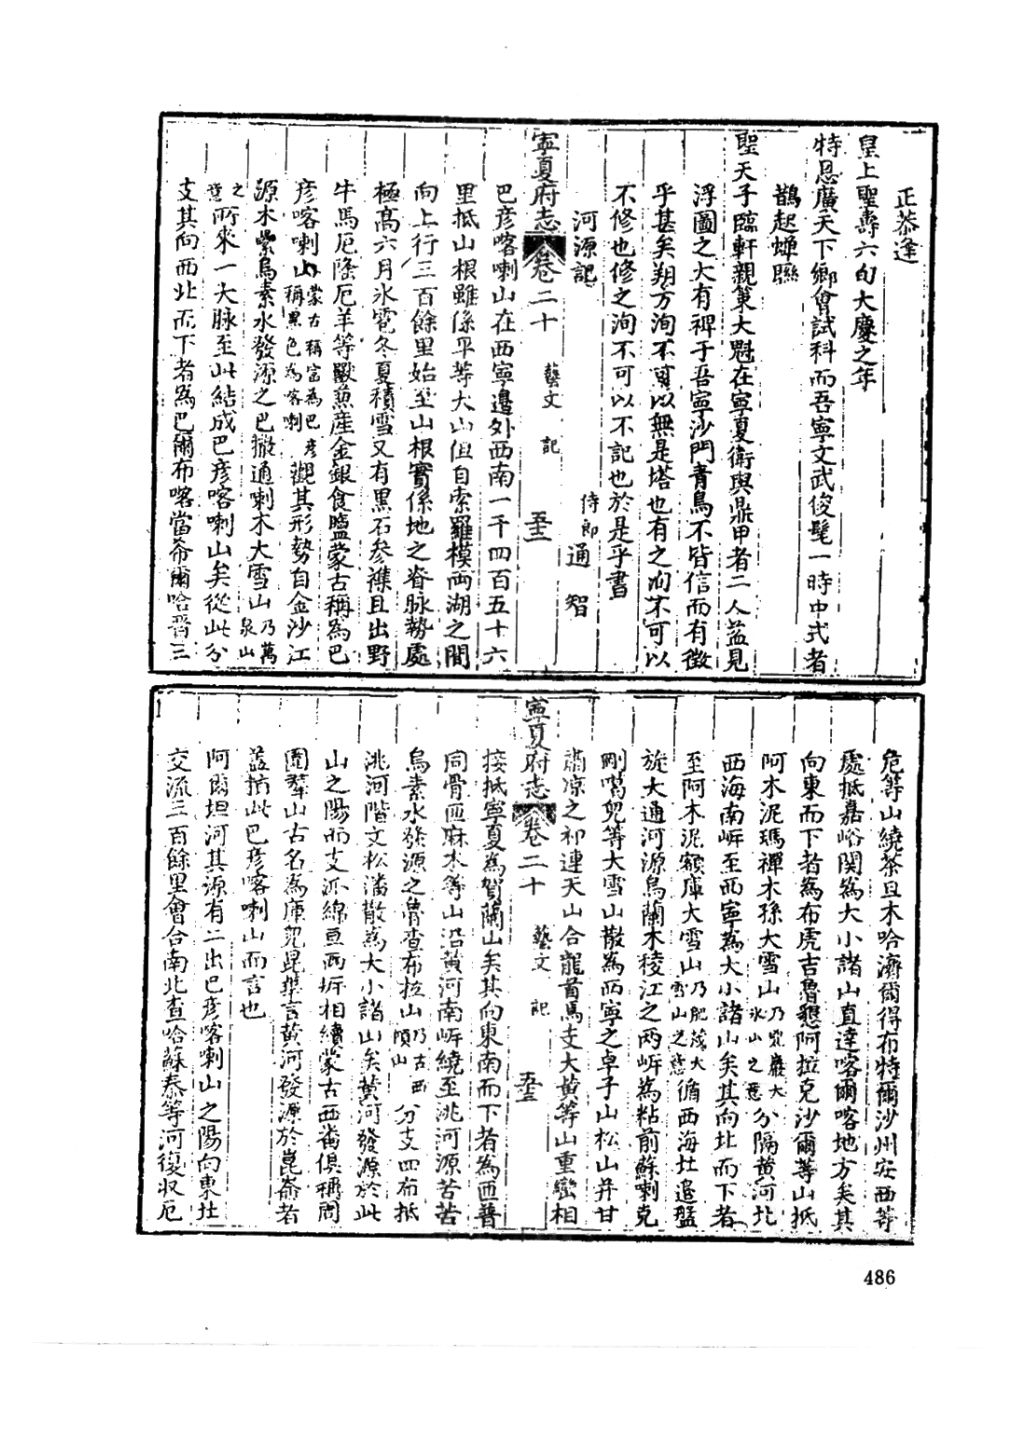 正恭逢
皇上聖壽六旬大慶之年
特恩廣天下鄉會試科而吾寧文武俊髦一時中式者
鵲起蟬聯
聖天子臨軒親策大魁在寧夏衛與鼎甲者二人益見
浮圖之大有裨于吾寧沙門青烏不皆信而有徵
乎甚矣朔方洵不可以無是塔也有之洵不可以
不修也修之洵不可以不記也於是乎書
河源記
侍郎通智
寧夏府志 卷二十 藝文 記 五三
巴彦喀喇山在西寧邊外西南一千四百五十六
里抵山根雖係平等大山但自索羅模兩湖之間
向上行三百餘里始至山根實係地之脊脉勢處
極高六月氷雹冬夏積雪又有黑石參襍且出野
牛馬厄隂厄羊等獸兼産金銀食鹽蒙古稱為巴
彦喀喇山蒙古稱富為巴彦稱黑色為喀喇觀其形勢自金沙江
源木紫烏素水發源之巴撒通喇木大雪山乃萬泉山
之意所來一大脉至此結成巴彦喀喇山矣從此分
支其向西北而下者為巴爾布喀當爺爾哈晋三
危等山繞茶旦木哈濟爾得布特爾沙州安西等
處抵嘉峪関為大小諸山直達喀爾喀地方矣其
向東而下者為布虎吉魯懇阿拉克沙爾等山抵
阿木泥瑪禪木孫大雪山乃巉巖大氷山之意分隔黄河北
西海南岍至西寧為大小諸山矣其向北而下者
至阿木泥額庫大雪山乃肥茂大雪山之意循西海北邉盤
旋大通河源烏蘭木稜江之两岍為粘前蘇喇克
剛噶兒等大雪山散為西寧之卓子山松山并甘
肅凉之祁連天山合龍首馬支大黄等山重巒相
寧夏府志 卷二十 藝文 記 五三
接抵寧夏為賀蘭山矣其向東南而下者為匝普
同骨匝麻木等山沿黄河南岍繞至洮河源苦苦
烏素水發源之魯查布拉山乃古西傾山分支四布抵
洮河階文松潘散為大小諸山矣黄河發源於此
山之陽而支派綿亘两岍相續蒙古西番俱稱周
圍羣山古名為庫兒昆雖言黄河發源於崑崙者
葢指此巴彦喀喇山而言也
阿爾坦河其源有二出巴彦喀喇山之陽向東北
交流三百餘里會合南北查哈蘇泰等河復収厄
486